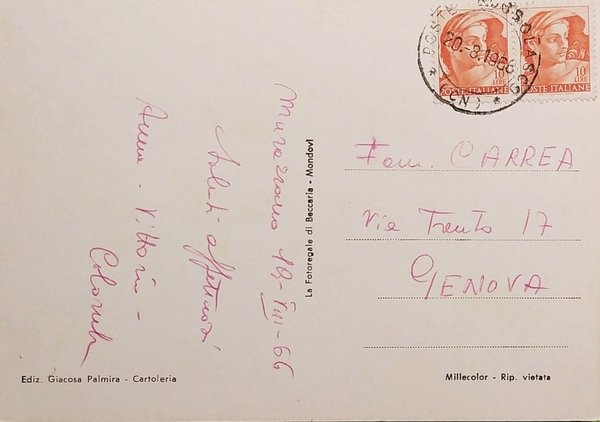 Murazzano 19-VIII-66
Saluti affettuosi
Anna - Vittorio -
Colomb
La Fotoregale di Beccaria - Mondovì
Ediz. Giacosa Palmira - Cartoleria
20.-8.1966
(CN)
10
LIRE
POSTE ITALIANE
10
LIRE
POSTE ITALIANE
Fam. CARREA
Via Trento 17
GENOVA
Millecolor - Rip. vietata